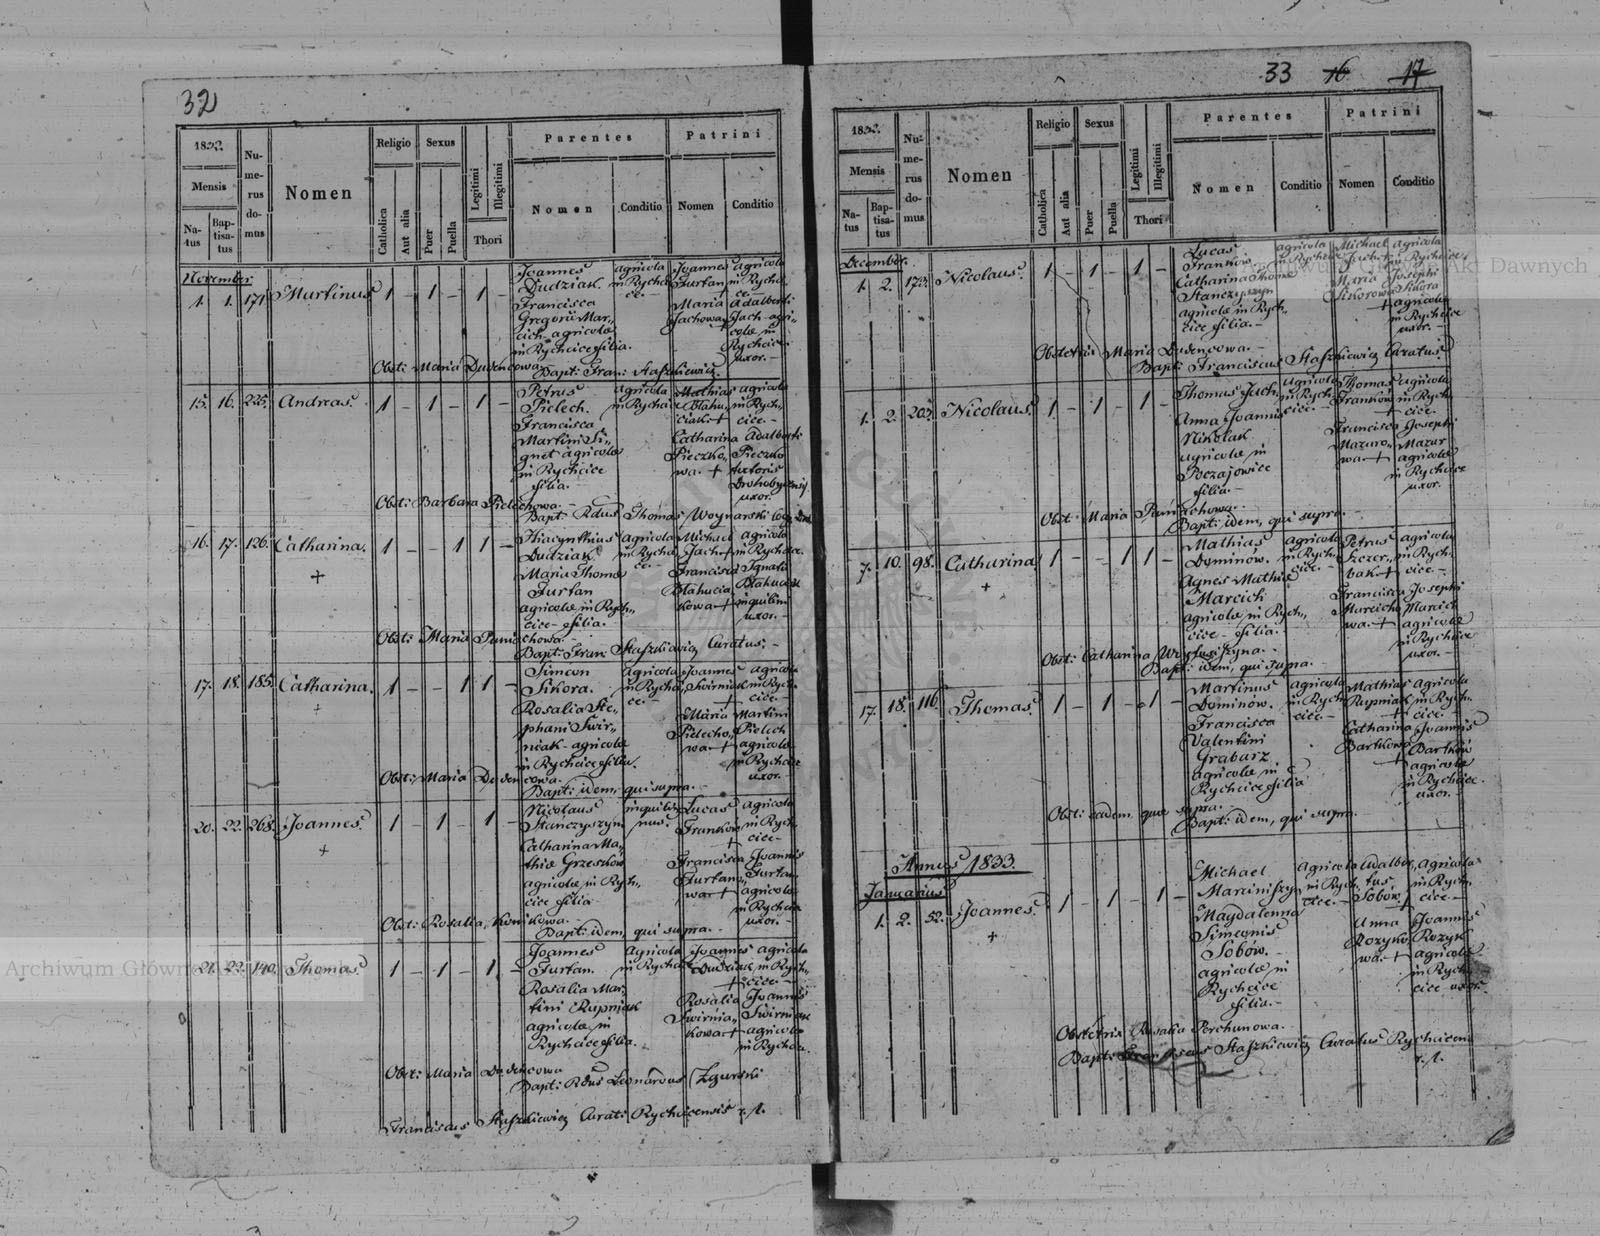 32
1832.
Mensis
Na-
tus
Bap-
tisa-
tus
Nu-
me-
rus
do-
mus
Nomen
Religio
Catholica
Aut alia
Sexus
Puer
Puella
Legitimi
Illegitimi
Thori
Parentes
Nomen
Conditio
Patrini
Nomen
Conditio
November
1. 1. 171. Martinus 1 – 1 – 1 –
Joannes
Dudziak.
Francisca
Gregorii Mar„
cich agricola
in Rychcice filia.
agricola
in Rychci
ce.
Joannes
Furtan
Maria
Jachowa
agricola
in Rychci
ce.
Adalberti
Jach agri„
cola in
Rychcice
uxor. –
Obst: Maria Dudencowa
Bapt: Fran: Staszkiewicz
15. 16. 225. Andreas. 1 – 1 – 1 –
Petrus
Pielech.
Francisca
Martini Si„
gnet agricola
in Rychcice
filia.
agricola
in Rychci
Mathias
Błahu„
ciak +
Catharina
Pieczko„
wa. +
agricola
in Rych„
cice. –
Adalberti
Pieczko
uxor.
Obst: Barbara Pielechowa. –
Bapt: Rdus Thomas Woynarski
16. 17. 126. Catharina. 1 – – 1 1 –
+
Hiacynthus
Dudziak
Maria Thoma
Furtan
agricola in Rych„
cice filia.
agricola
in Rychci
ce –
Michael
Jach +
Francisca
Błahucia„
kowa +
agricola
in Rychcice.
Ignatii
Błahuciak
inquilini
uxor. –
Obst: Maria Paniachowa. –
Bapt: Fran: Staszkiewicz Curatus. –
17. 18. 185. Catharina. 1 – – 1 1 –
+
Simeon
Sikora.
Rosalia Ste„
phani Swir„
niak agricola
in Rychcice filia.
agricola
in Rychci
ce. –
Joannes
Swirniak
+
Maria
Pielecho„
wa +
agricola
in Rych„
cice –
Martini
Pielech
agricola
in Rychcice
uxor. –
Obst: Maria Dudencowa. –
Bapt: idem, qui supra. –
20. 22. 268. Joannes. 1 – 1 – 1 –
+
Nicolaus
Stanczyszyn
Catharina Ma„
thia Grzeszków
agricola in Rych„
cice filia
inquili
nus.
Lucas
Franków
+
Francisca
Furtano„
wa +
agricola
in Rych„
cice –
Joannis
Furtan
agricola
in Rychcice
uxor. –
Obst: Rosalia Konikowa. –
Bapt: idem, qui supra. –
21. 22. 140. Thomas. 1 – 1 – 1 –
Joannes
Furtan.
Rosalia Mar„
tini Rupniak
agricola in
Rychcice filia.
agricola
in Rychci
Joannes
Dudziak
+
Rosalia
Swirnia„
kowa +
agricola
in Rych„
cice –
Joannis
Swirniak
agricola
in Rychci.
Obst: Maria Dudencowa
Bapt: Rdus Leonardus Zgurski
Franciscus Staszkiewicz Curat: Rychcicensis
33 16 17
1832.
Mensis
Na-
tus
Bap-
tisa-
tus
Nu-
me-
rus
do-
mus
Nomen
Religio
Catholica
Aut alia
Sexus
Puer
Puella
Legitimi
Illegitimi
Thori
Parentes
Nomen
Conditio
Patrini
Nomen
Conditio
December.
1. 2. 173. Nicolaus. 1 – 1 – 1 –
Lucas
Franków
Catharina Thoma
Stanczyszyn
agricola in Rych„
cice filia. –
agricola
in Rychcice
Michael
Jach +
Maria
Sikorowa
+
agricola
in Rychcice
Josephi
Sikora
agricola
in Rychcice
uxor. –
Obstetrix Maria Dudencowa. –
Bapt: Franciscus Staszkiewicz Curatus
1. 2. 203. Nicolaus. 1 – 1 – 1 –
Thomas Jach.
Anna Joannis
Nikolak
agricola in
Poczajowice
filia. –
agricola
in Rych„
cice. –
Thomas
Franków
+
Francisca
Mazuro„
wa. +
agricola
in Rych„
cice. –
Josephi
Mazur
agricola
in Rychcice
uxor.
Obst: Maria Paniachowa. –
Bapt: idem, qui supra. –
7. 10. 98. Catharina 1 – – 1 1 –
+
Mathias
Dominów.
Agnes Mathia
Marcich
agricola in Rych„
cice – filia. –
agricola
in Rych„
cice. –
Petrus
Szczer„
bak +
Francisca
Marcicho
wa. +
agricola
in Rych„
cice. –
Josephi
Marcich
agricola
in Rychcice
uxor. –
Obst: Catharina
Bapt: idem, qui supra. –
17. 18. 116. Thomas. 1 – 1 – 1 –
Martinus
Dominów.
Francisca
Valentini
Grabarz
agricola in
Rychcice filia
agricola
in Rych
cice. –
Mathias
Rupniak
+
Catharina
Bartkowa
+
agricola
in Rych„
cice.
Joannis
Bartków
agricola
in Rychcice.
uxor. –
Obst: eadem quae supra.
Bapt: idem, qui supra.
Annus 1833.
Januarius
1. 2. 52. Joannes. 1 – 1 – 1 –
+
Michael
Marciniszyn
Magdalena
Simeonis
Sobów. –
agricola in
Rychcice
filia. –
agricola
in Rych„
cice. –
Adalber„
tus
Sobów.
+
Anna
Rozyko„
wa. +
agricola
in Rych„
cice –
Joannis
Rozyk
agricola
in Rych„
cice uxor.
Obstetrix Rosalia Perchunowa.
Bapt: Franciscus Staszkiewicz Curatus Rychcicen
Archiwum Główne Akt Dawnych
Archiwum Główne Akt Dawnych